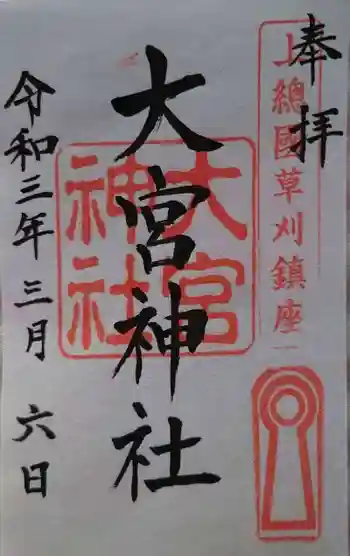 奉拝
上總國草刈鎮座
大宮神社
大宮
神社
令和三年三月六日